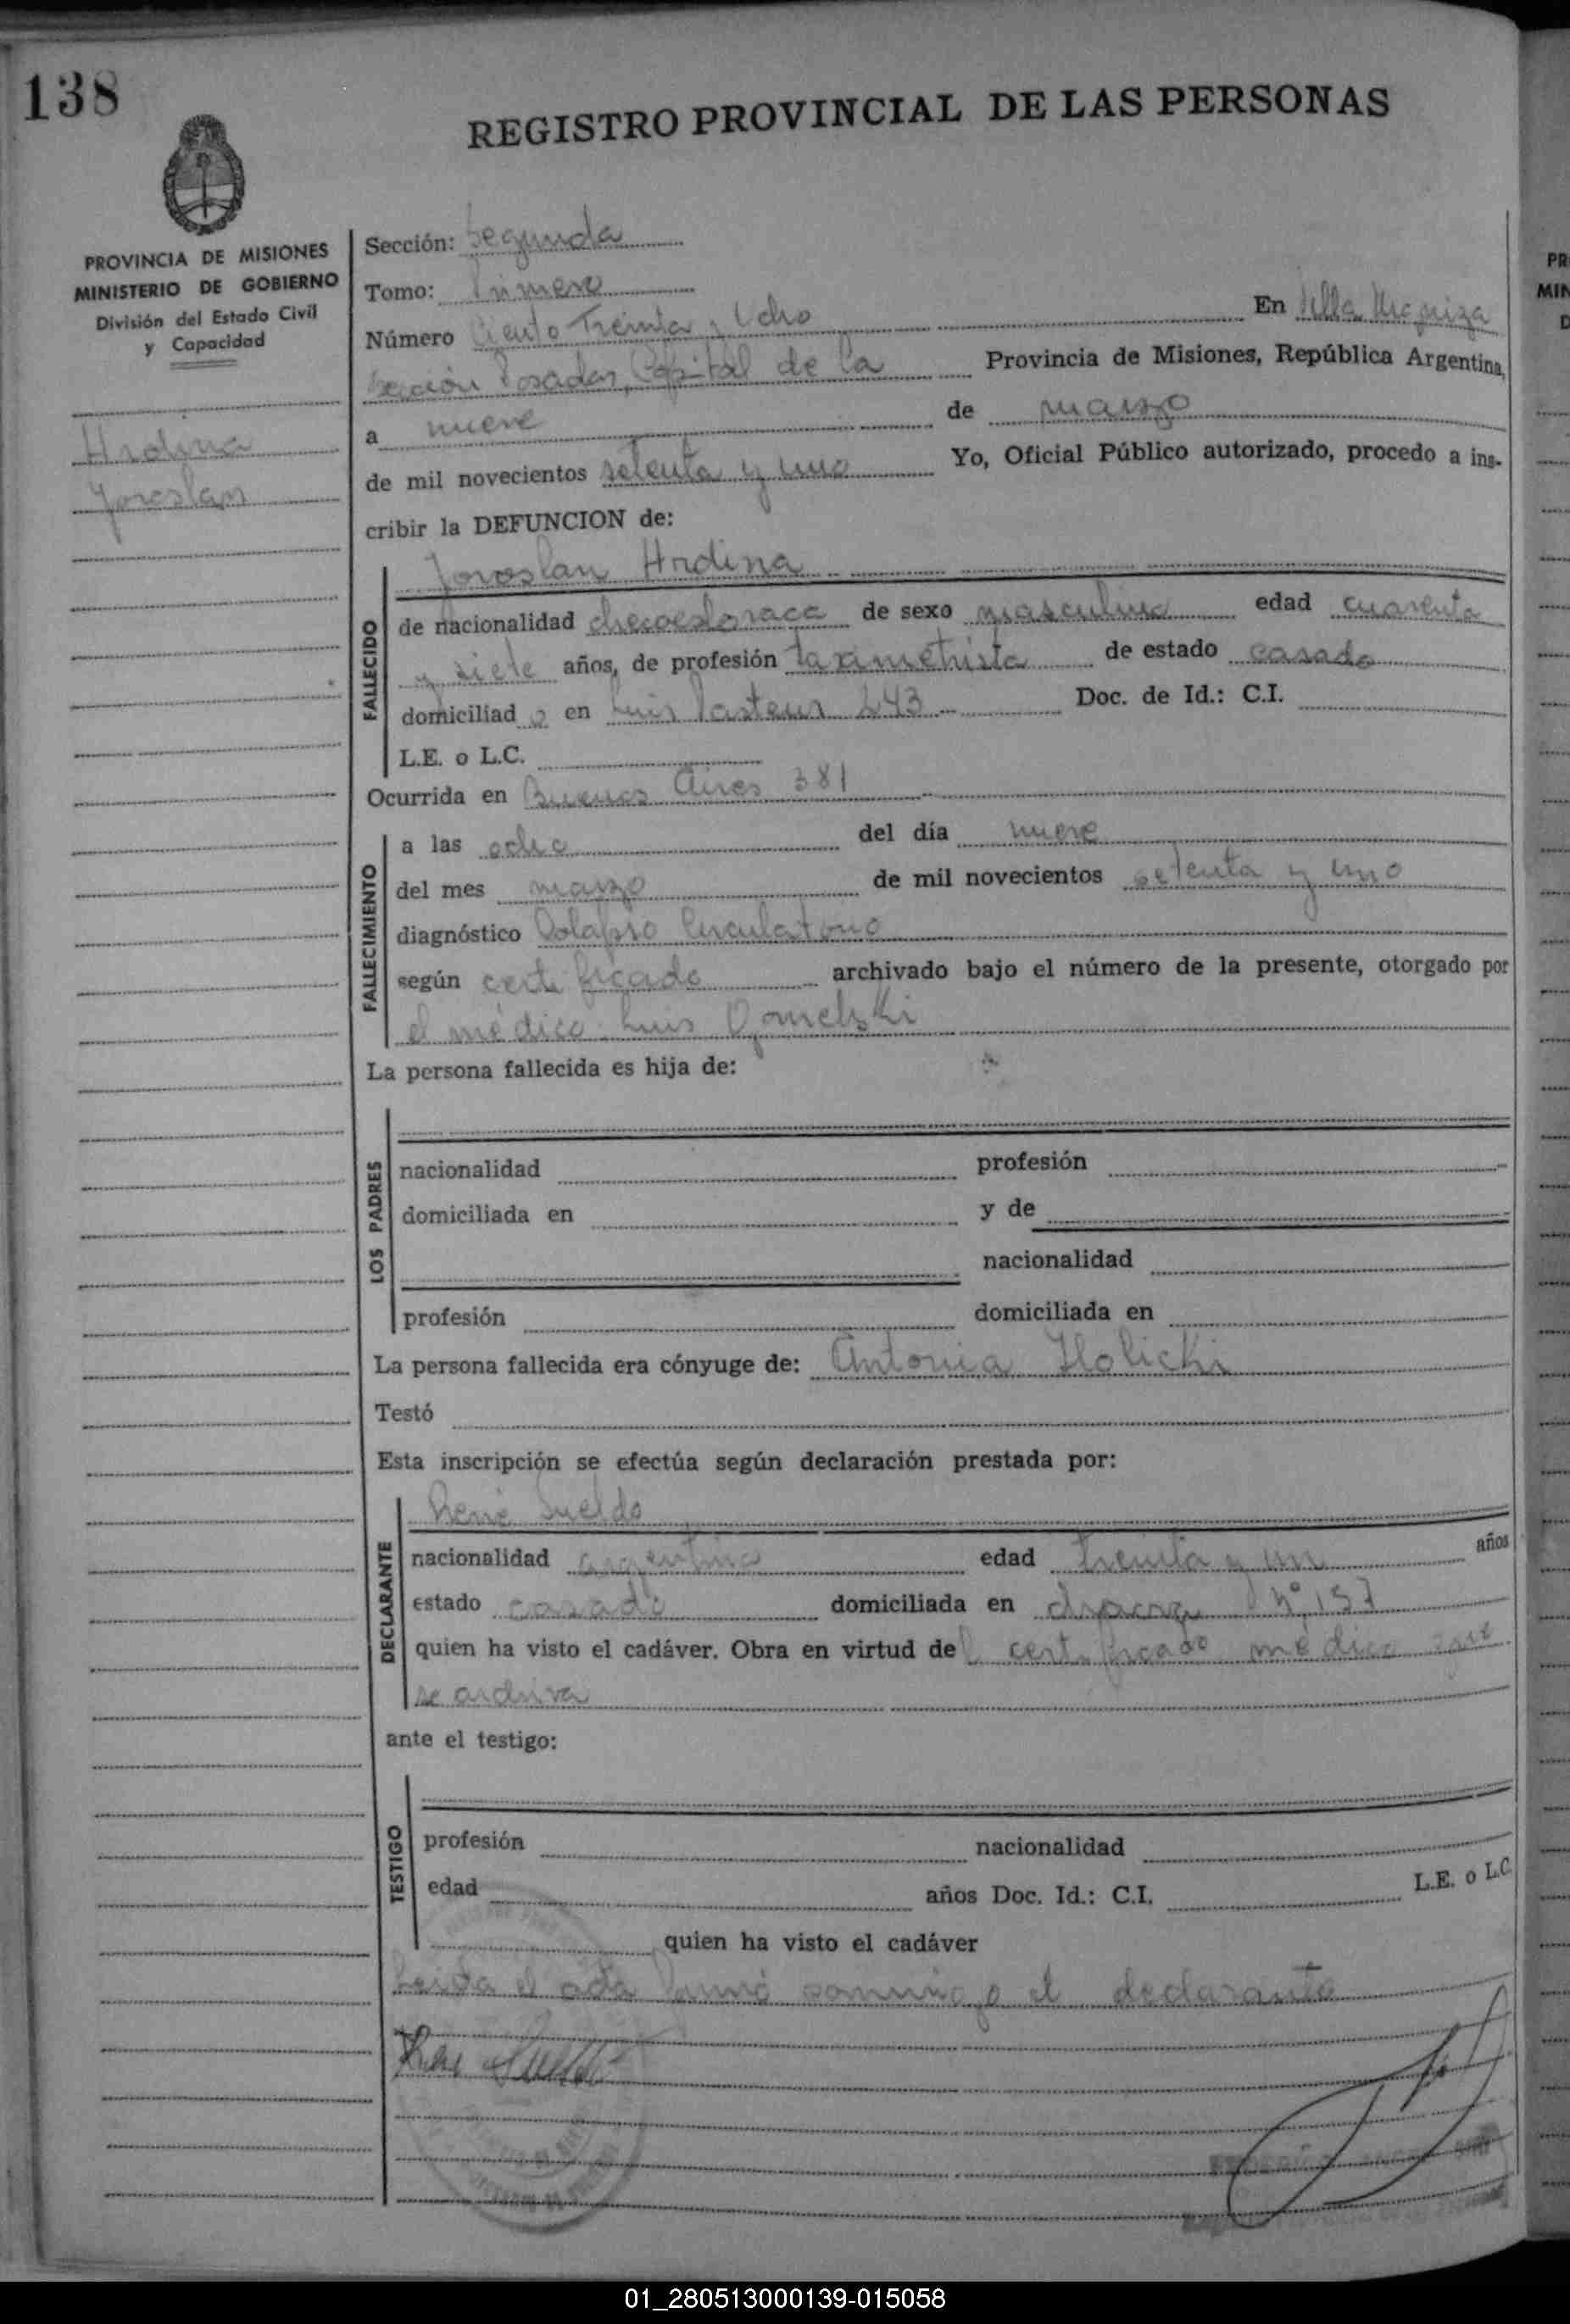 138
REGISTRO PROVINCIAL DE LAS PERSONAS
PROVINCIA DE MISIONES
MINISTERIO DE GOBIERNO
División del Estado Civil
y Capacidad
Hrdina
Joroslan
Sección: Segunda
Tomo: Primero
Número Ciento Treinta y Ocho En Villa Urquiza
Sección Posadas, Capital de la Provincia de Misiones, República Argentina,
a nueve de marzo
de mil novecientos setenta y uno Yo, Oficial Público autorizado, procedo a ins-
cribir la DEFUNCION de:
FALLECIDO
Joroslan Hrdina
de nacionalidad checoeslovaca de sexo masculino edad cuarenta
y siete años, de profesión taximetrista de estado casado
domiciliad o en Luis Pasteur 243 Doc. de Id.: C.I.
L.E. o L.C.
Ocurrida en Buenos Aires 381
FALLECIMIENTO
a las ocho del día nueve
del mes marzo de mil novecientos setenta y uno
diagnóstico Colapso Circulatorio
según certificado archivado bajo el número de la presente, otorgado por
el médico Luis
La persona fallecida es hija de:
LOS PADRES
nacionalidad profesión
domiciliada en y de
nacionalidad
profesión domiciliada en
La persona fallecida era cónyuge de: Antonia Holicki
Testó
Esta inscripción se efectúa según declaración prestada por:
DECLARANTE
René Sueldo
nacionalidad argentino edad treinta y un años
estado casado domiciliada en Nº 157
quien ha visto el cadáver. Obra en virtud del certificado médico que
se archiva
ante el testigo:
TESTIGO
profesión nacionalidad
edad años Doc. Id.: C.I. L.E. o L.C
quien ha visto el cadáver
Leída el acta firmó conmigo el declarante
Rene Sueldo
01_280513000139-015058